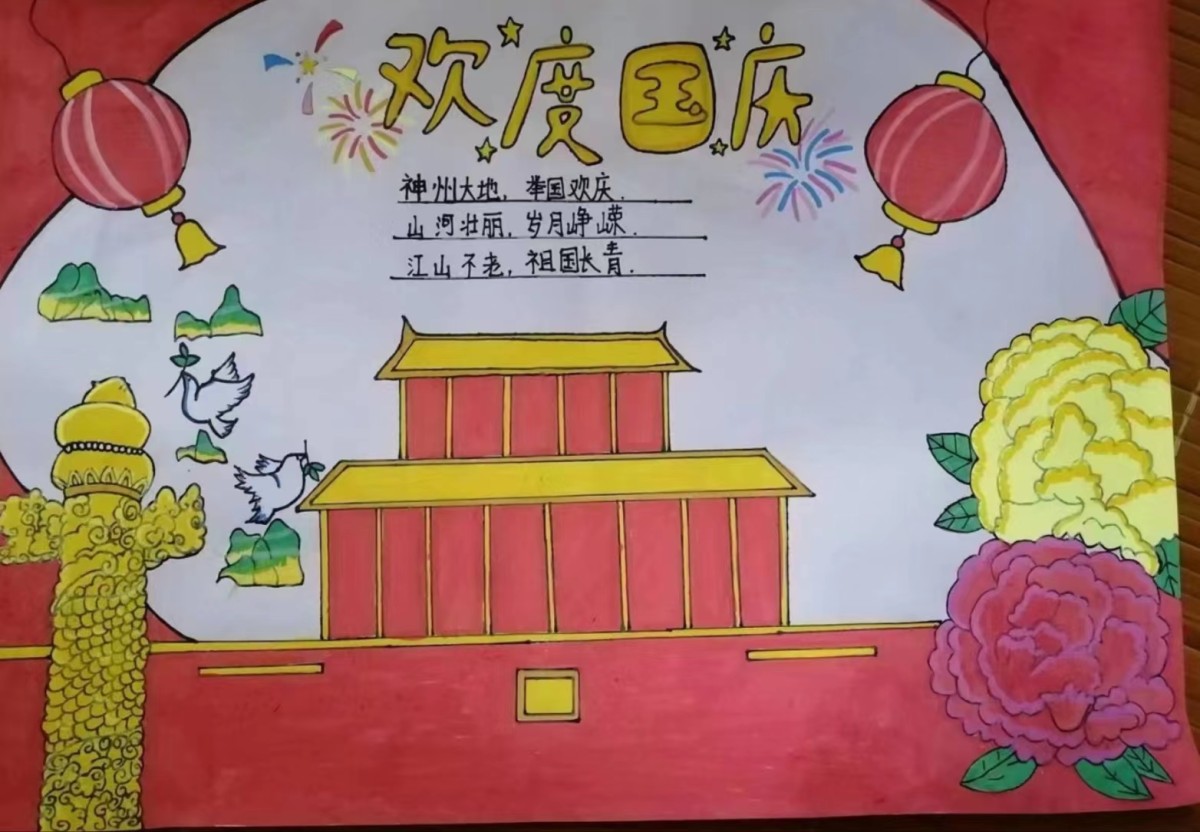 欢度国庆
神州大地，举国欢庆.
山河壮丽，岁月峥嵘.
江山不老，祖国长青.